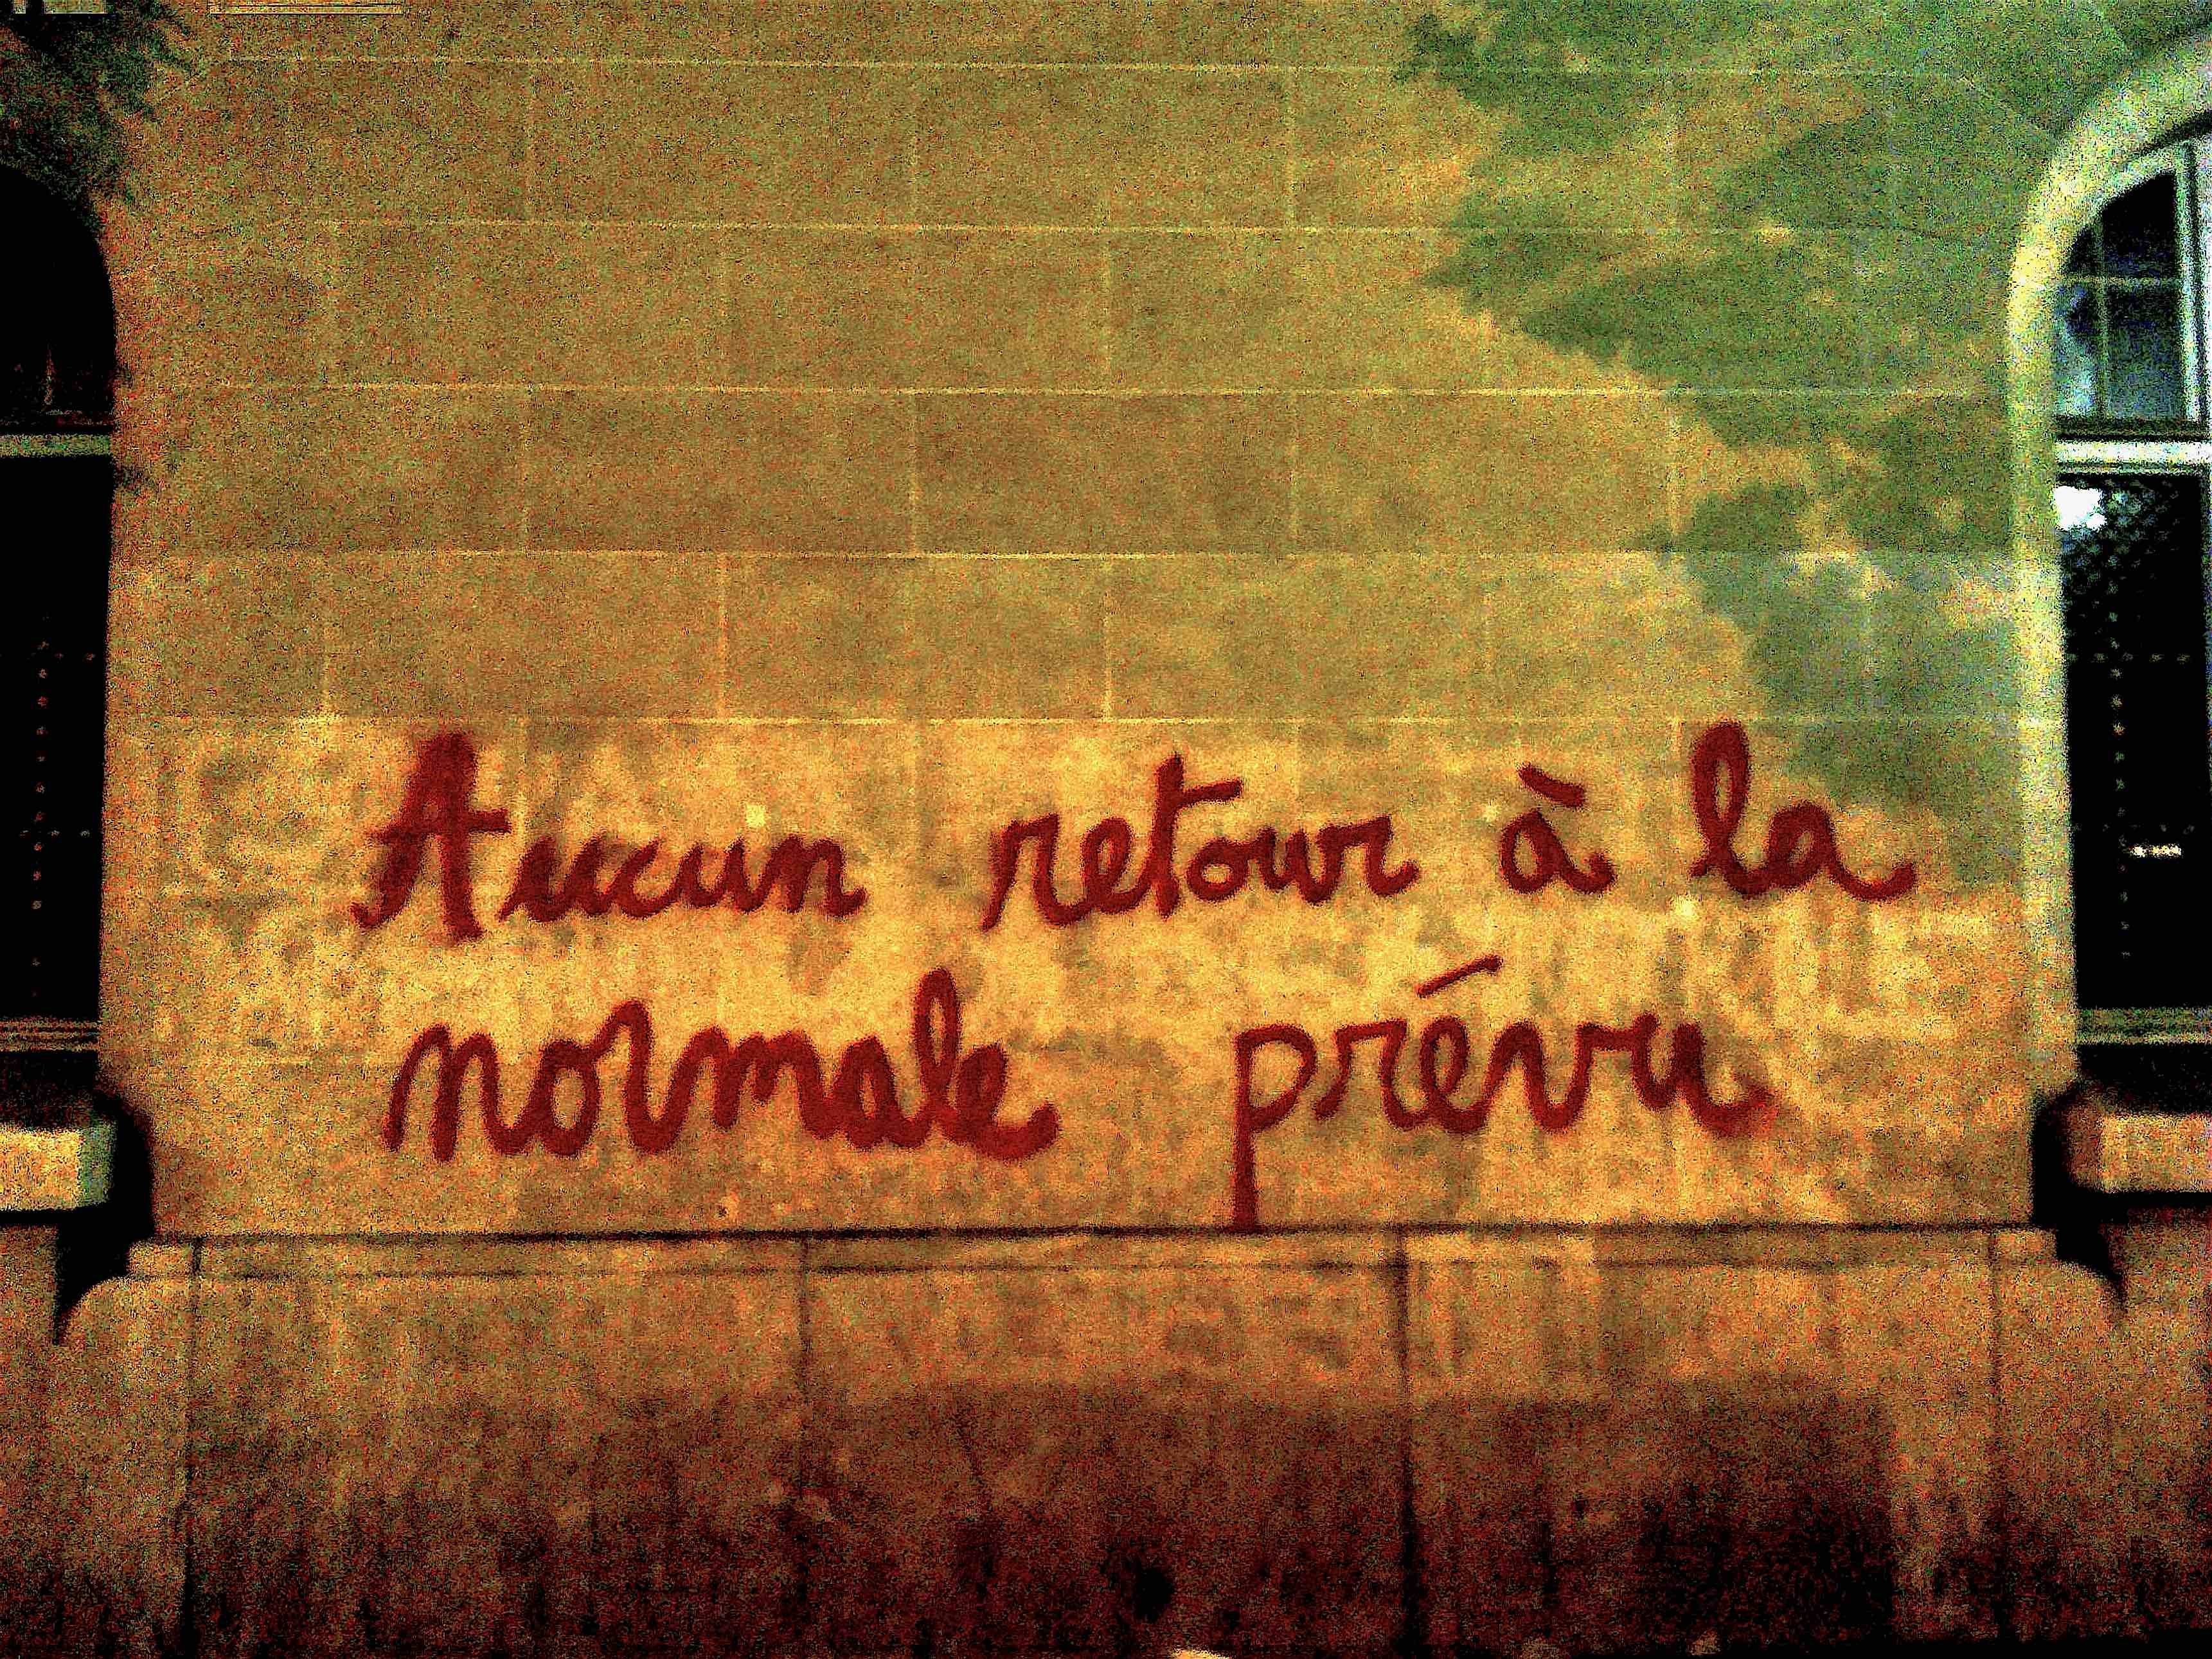 Aucun retour à la
normale prévu